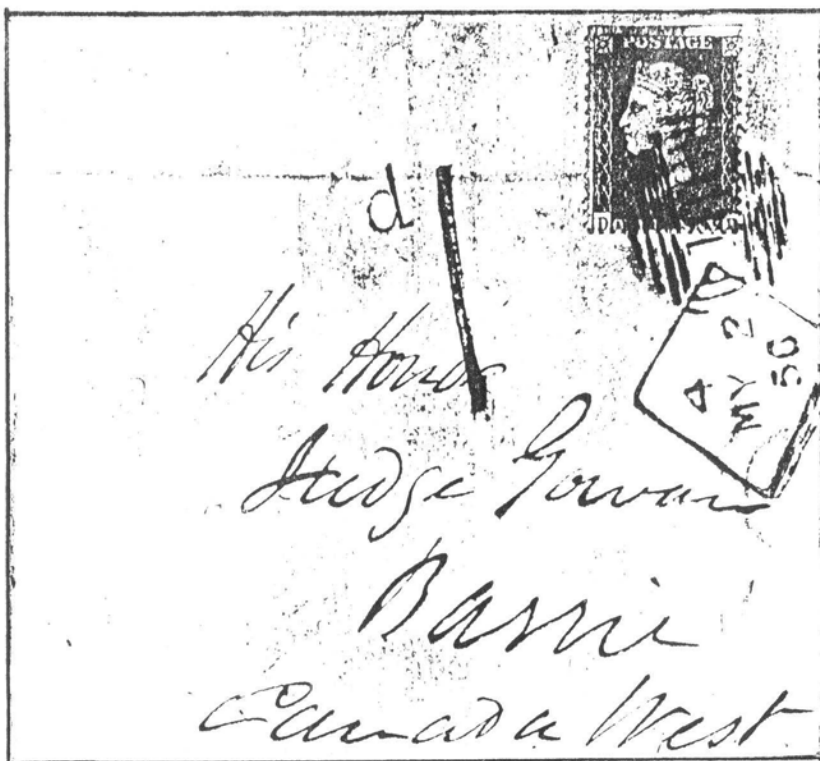 POSTAGE
d 1
4
MY 2
56
His Honor
Judge Gowan
Barrie
Canada West